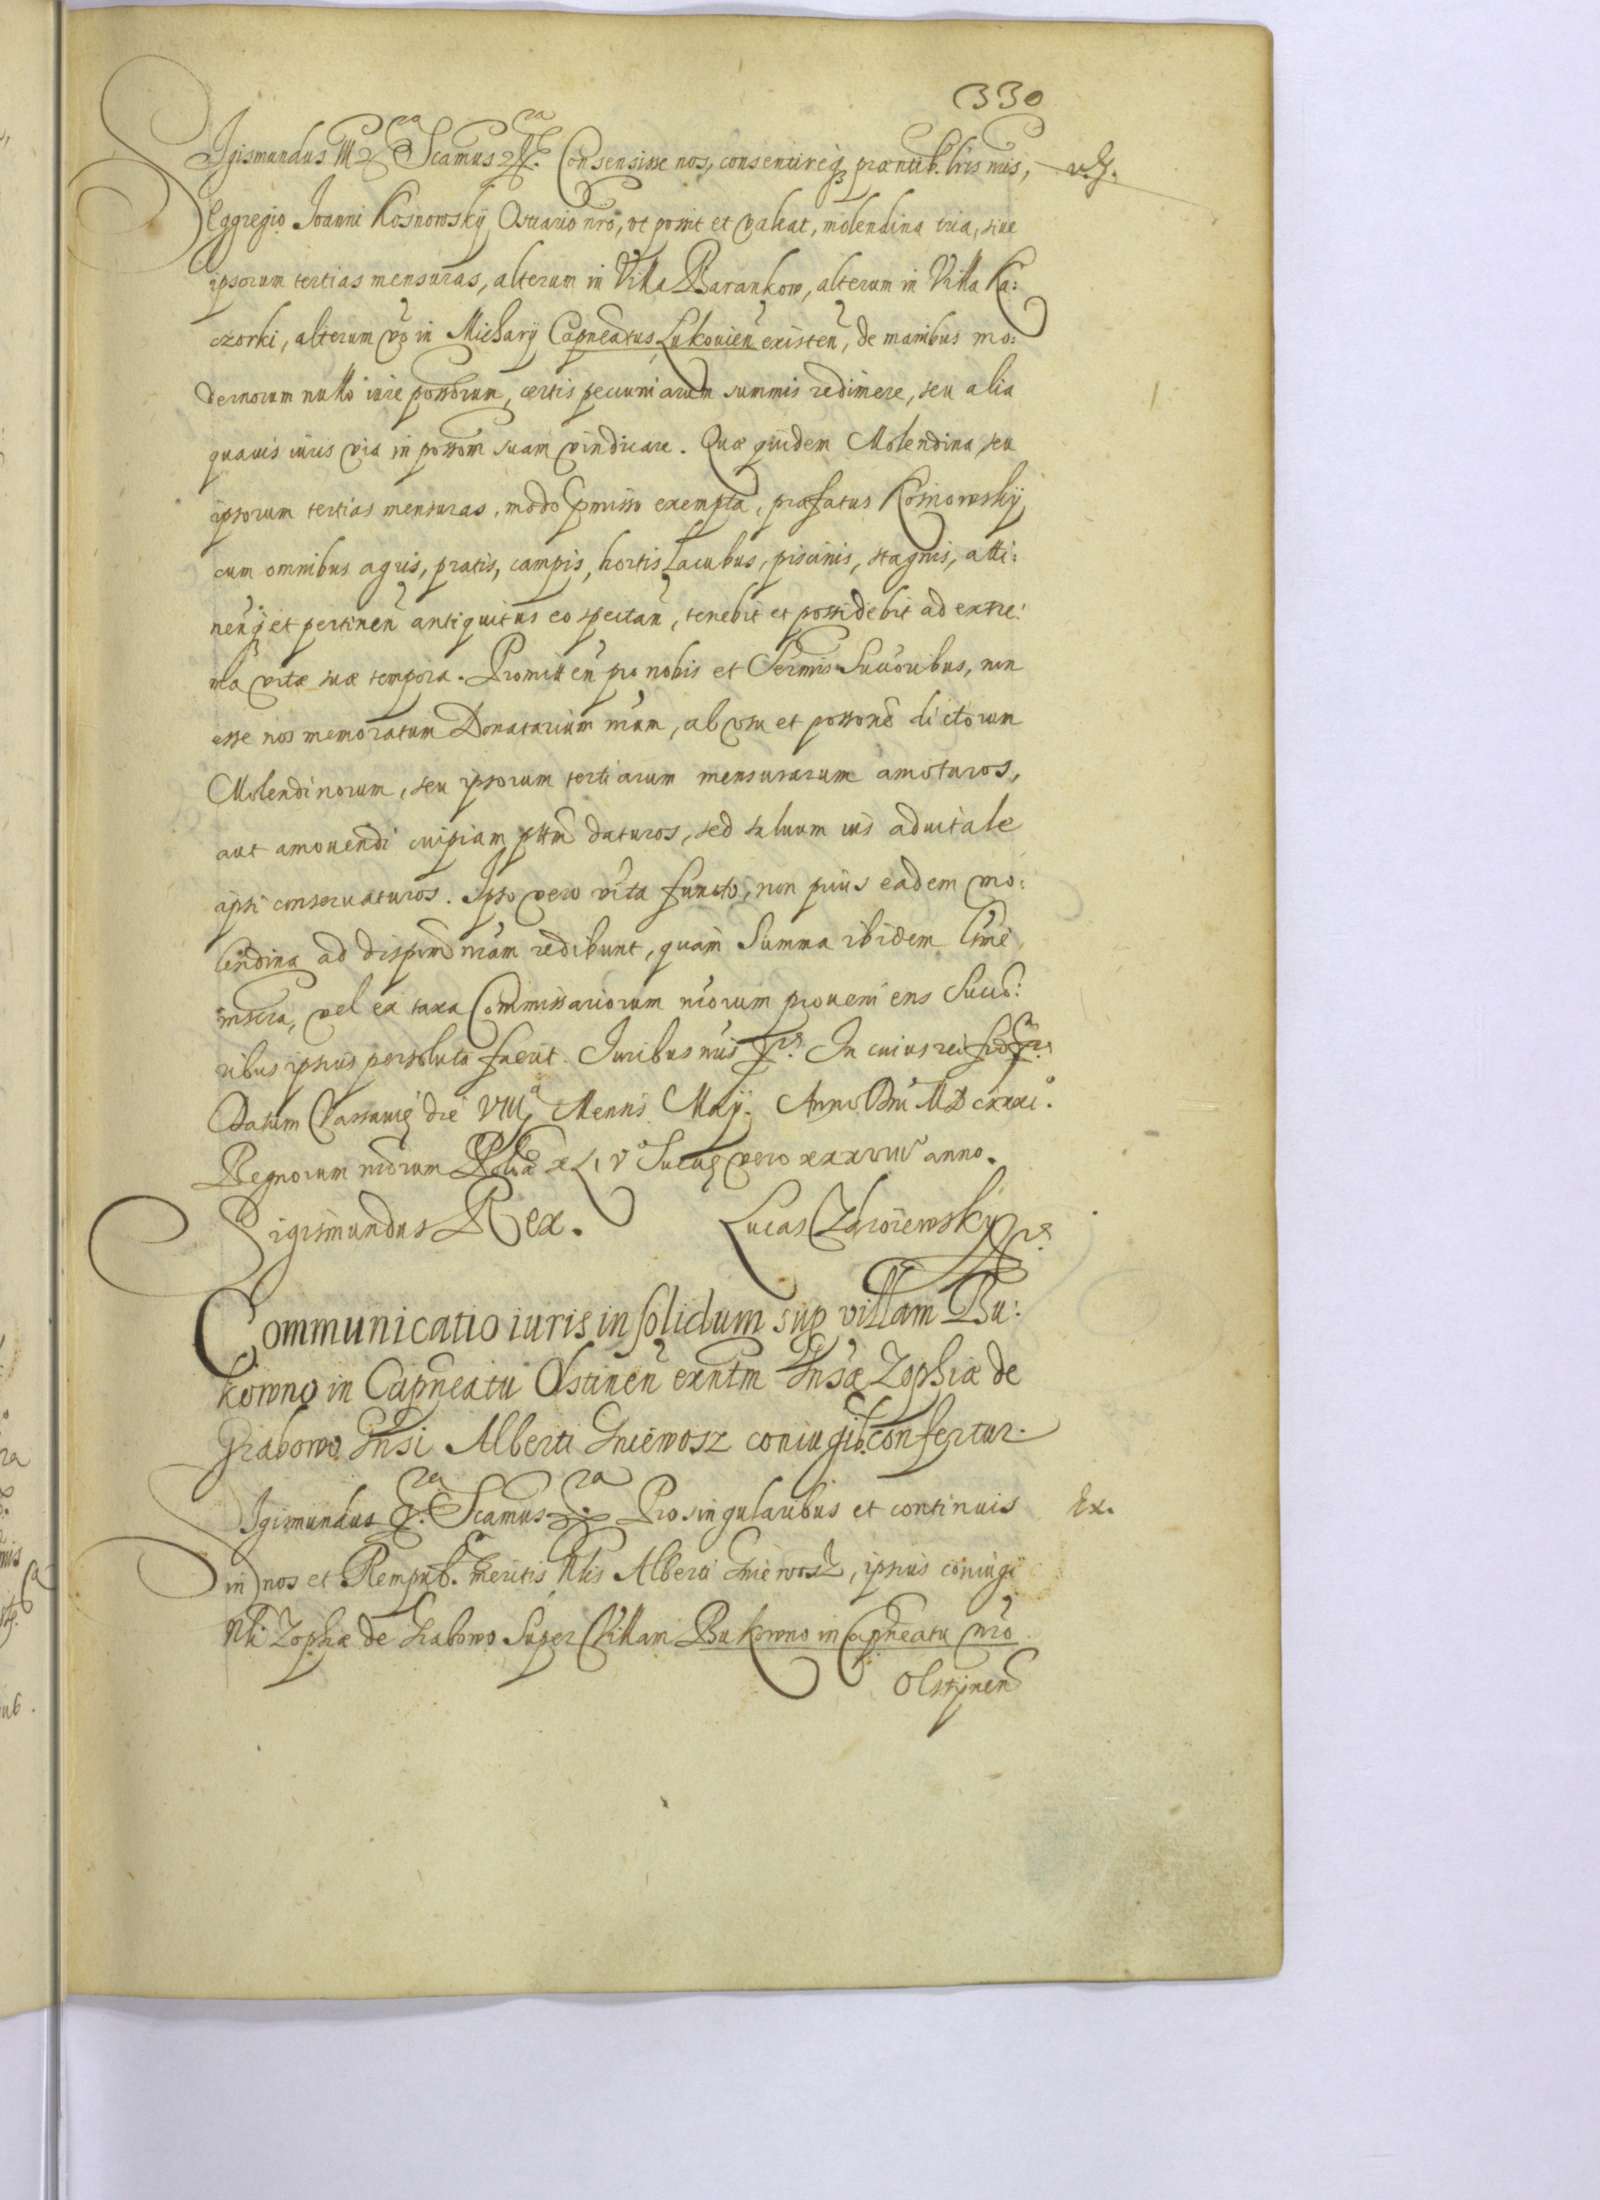 330
Sigismundus III etc. Scamus etc. Consensisse nos, consentireq; præntib. lris nris,
Eggregio Joanni Kosnowskÿ Ostiario nro, vt possit et valeat, molendina tria, siue
ipsorum tertias mensuras, alterum in Villa Barankow, alterum in Villa Ka:
czorki, alterum vo in Micharÿ Capneatus Lukouien existen, de manibus mo:
dernorum nullo iure possorum, certis pecuniarum summis redimere, seu alia
quauis iuris via in possom suam vindicare. Quæ quidem Molendina seu
ipsorum tertias mensuras, modo pmisso exempta, præfatus Kosnowskÿ
cum omnibus agris, pratis, campis, hortis, Lacubus, piscinis, stagnis, atti:
nen q; et pertinen antiquitus eo spectan, tenebit et possidebit ad extre:
ma vitæ suæ tempora. Promitten pro nobis et Sermis Succoribus, non
esse nos memoratum Donatarium nrum, ab vsu et possone dictorum
Molendinorum, seu ipsorum tertiarum mensurarum amoturos,
aut amouendi cuipiam pttm daturos, sed saluum ius aduitale
ipsi conseruaturos. Ipso vero vita functo, non prius eadem mo:
lendina ad dispom nram redibunt, quam Summa ibidem lttme
inscra, vel ex taxa Commissariorum nrorum proueniens Succo:
ribus ipsius persoluta fuerit. Juribus nris etc. In cuius rei fidem etc.
Datum Varsauiæ die VIII Mensis Maÿ. Anno Dni MDCXXXI.
Regnorum nrorum Poloæ XLIV Sueciæ vero XXXVIII anno.
Sigismundus Rex. Lucas Zdroiewskÿ
Communicatio iuris in solidum sup villam Bu:
kowno in Capneatu Olstinen exntm Gnsæ Zophiæ de
Grabowo Gnsi Alberti Gniewosz coniugib. confertur.
Sigismundus etc. Scamus etc. Pro singularibus et continuis
Ex.
in nos et Rempub. meritis Nlis Alberti Gniewosz, ipsius coniugi
Nli Zophiæ de Grabowo Super Villam Bukowno in Capneatu nro
Olstÿnen